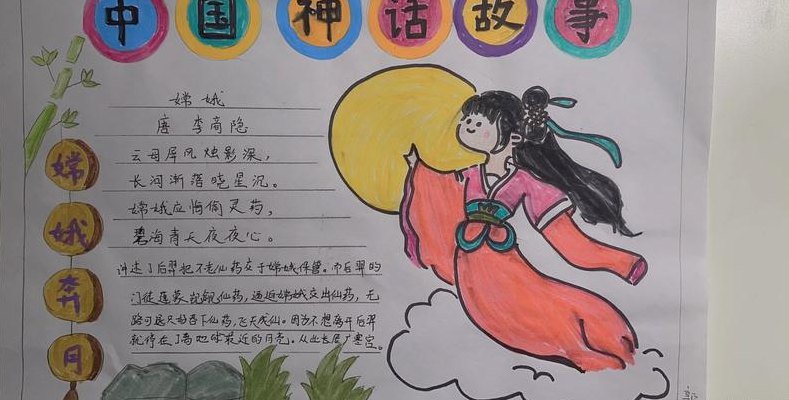 中国神话故事
嫦娥奔月
嫦娥
唐 李商隐
云母屏风烛影深，
长河渐落晓星沉。
嫦娥应悔偷灵药，
碧海青天夜夜心。
讲述了后羿把不老仙药交于嫦娥保管。而后羿的
门徒蓬蒙觊觎仙药，逼迫嫦娥交出仙药，无
路可退只好吞下仙药，飞天成仙。因为不想离开后羿
就停在了离地球最近的月亮。从此长居广寒宫。